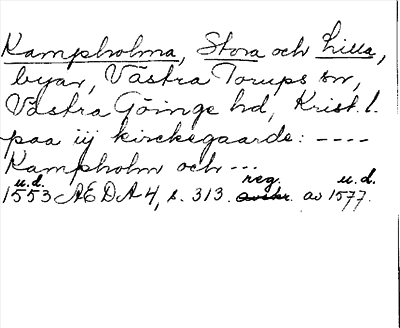 Kampholma, Stora och Lilla,
byar, Västra Torups sn,
Västra Göinge hd, Krist. l.
paa iij kirckegaarde: ----
Kampholm och ---
u.d. reg. u.d.
1553 AEDA 4, s. 313. avskr. av 1577.